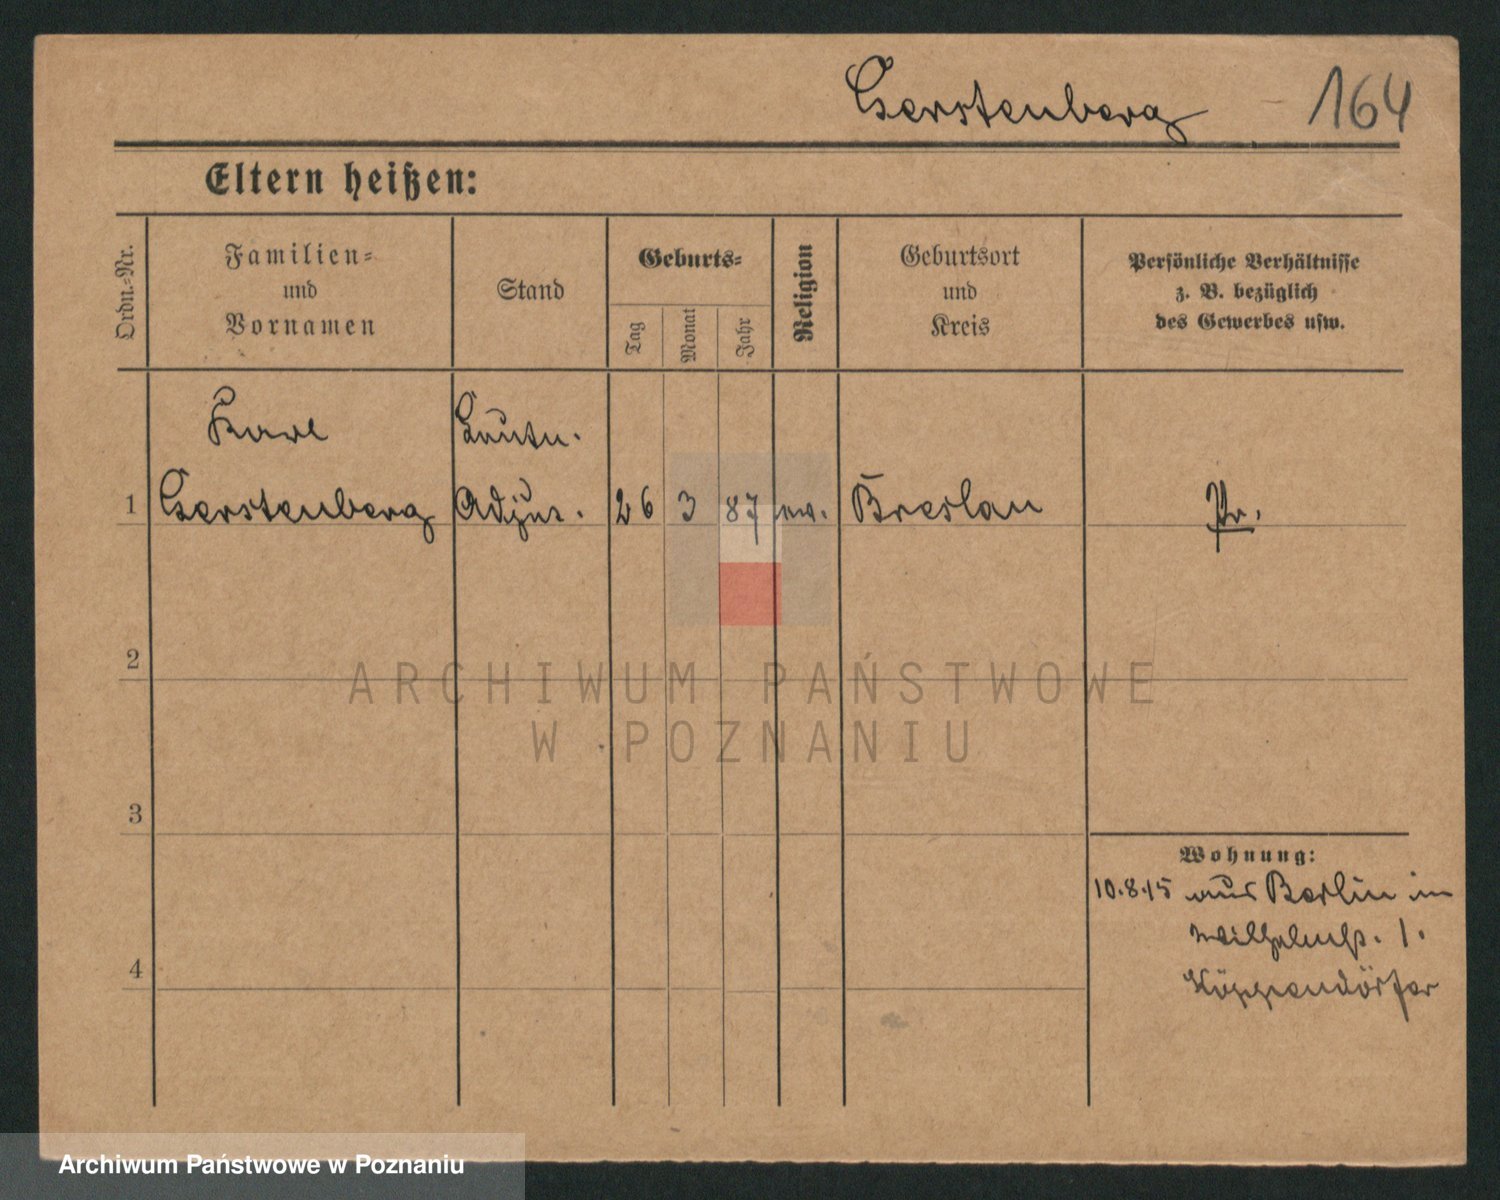 Gerstenberg 164
Eltern heißen:
Ordn.-Nr.
Familien-
und
Vornamen
Stand
Geburts-
Tag
Monat
Jahr
Religion
Geburtsort
und
Kreis
Persönliche Verhältnisse
z. B. bezüglich
des Gewerbes usw.
Karl
Leutn.
1 Gerstenberg Adjut. 26 3 87 ev. Breslau Pr.
2
3
4
Wohnung:
10.8.15 aus Berlin in
Wilhelmstr. 1.
Köppendörfer
ARCHIWUM PAŃSTWOWE
W POZNANIU
Archiwum Państwowe w Poznaniu